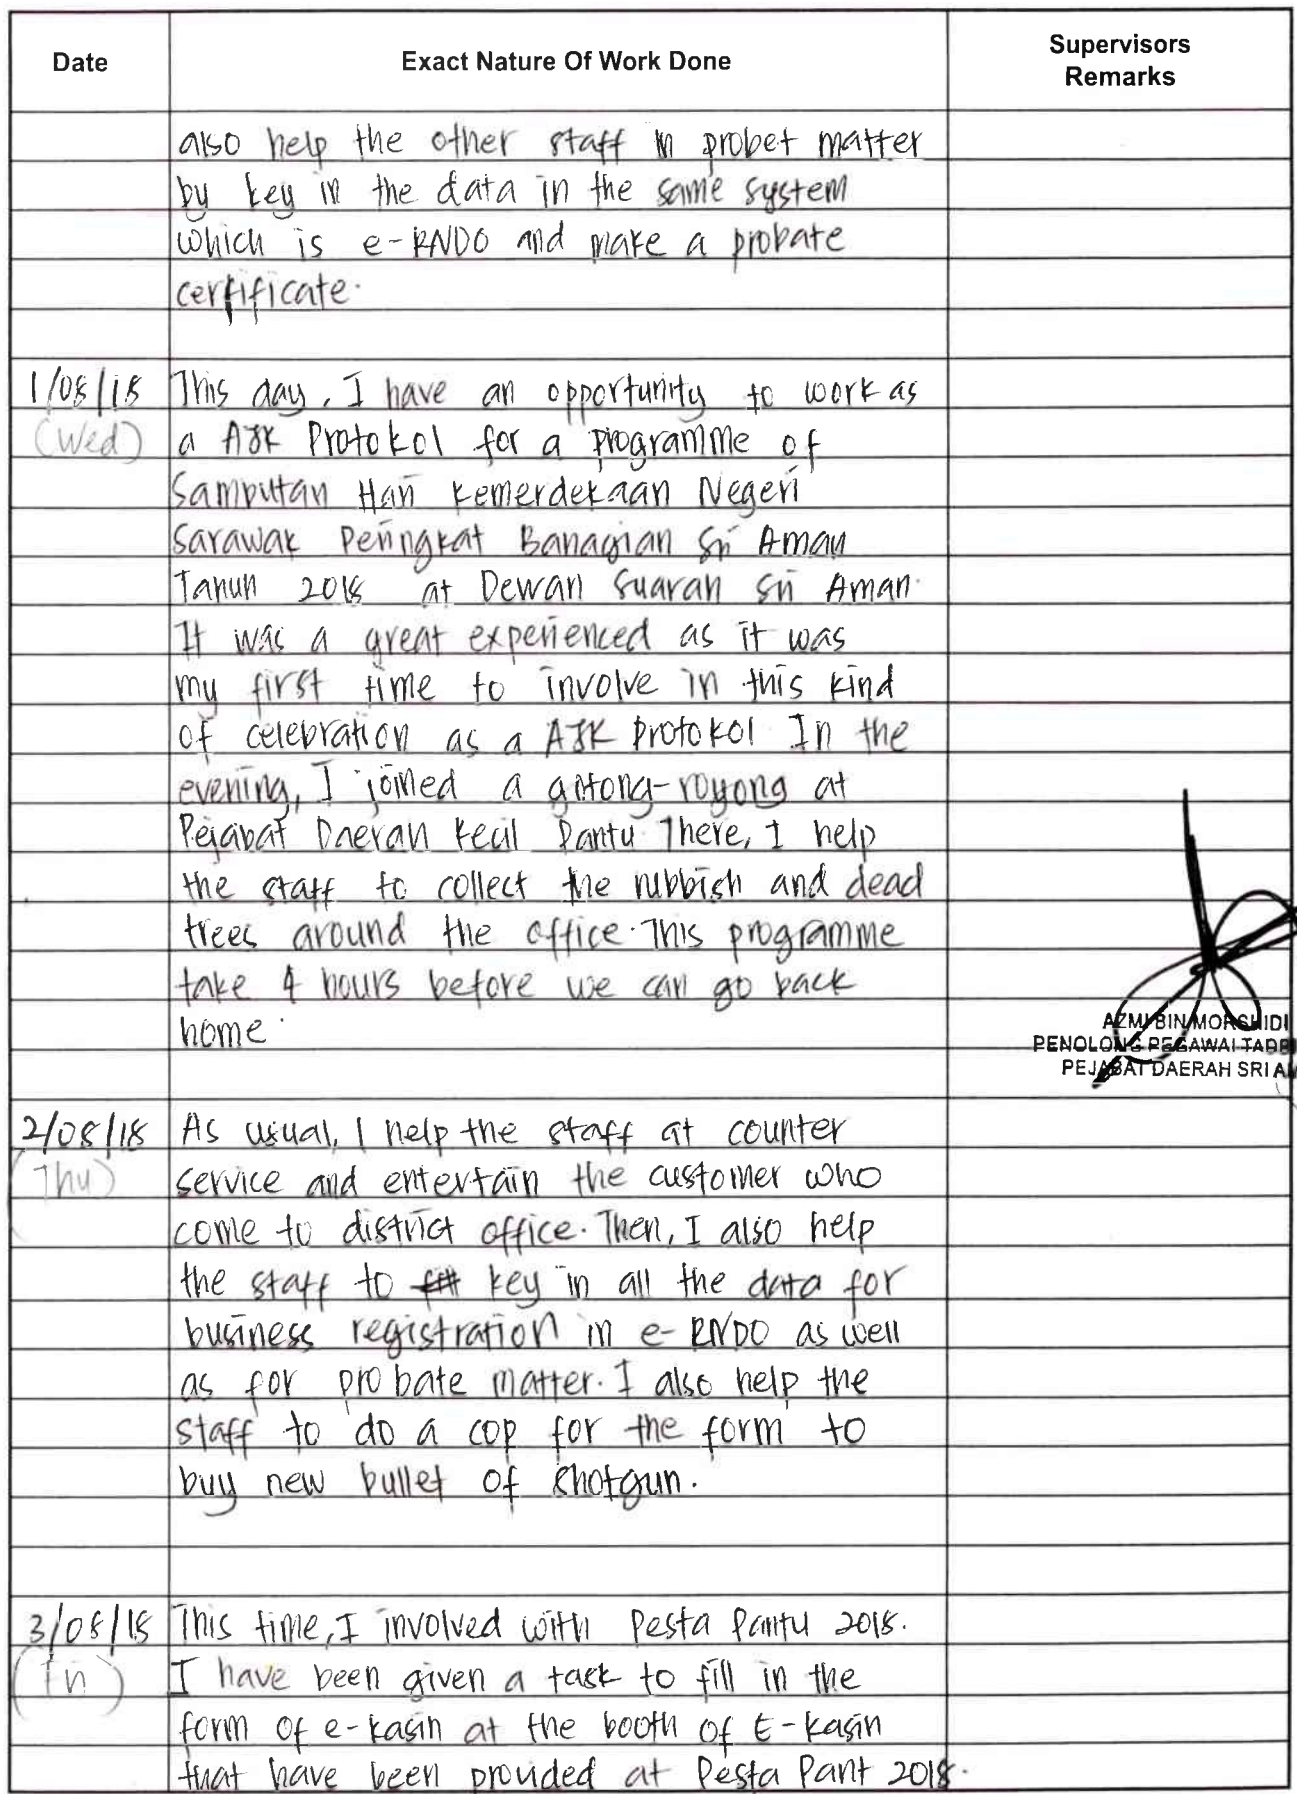 Date
Exact Nature Of Work Done
Supervisors
Remarks
also help the other staff in probet matter
by key in the data in the same system
which is e-RNDO and make a probate
certificate.
1/08/18 This day, I have an opportunity to work as
(Wed) a AJK Protokol for a programme of
Sambutan Hari Kemerdekaan Negeri
Sarawak Peringkat Banagian Sri Aman
Tahun 2018 at Dewan Suarah Sri Aman.
It was a great experienced as it was
my first time to involve in this kind
of celebration as a AJK Protokol In the
evening, I joined a gotong-royong at
Pejabat Daerah Kecil Pantu There, I help
the staff to collect the rubbish and dead
trees around the office. This programme
take 4 hours before we can go back
home.
AZMI BIN MORSHIDI
PENOLONG PEGAWAI TADB
PEJABAT DAERAH SRI AM
2/08/18 As usual, I help the staff at counter
(Thu) service and entertain the customer who
come to district office. Then, I also help
the staff to key in all the data for
business registration in e-RNDO as well
as for probate matter. I also help the
staff to do a cop for the form to
buy new bullet of shotgun.
3/08/18 This time, I involved with Pesta Pantu 2018.
(Fri) I have been given a task to fill in the
form of e-kasih at the booth of E-kasih
that have been provided at Pesta Pant 2018.